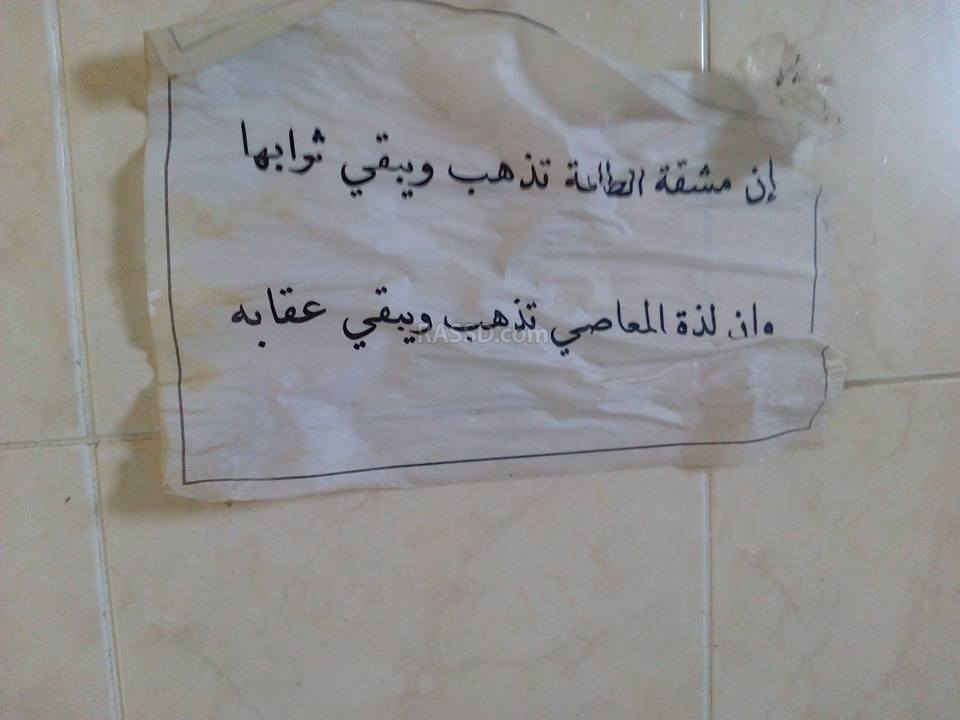 إن مشقة الطاعة تذهب ويبقي ثوابها
وان لذة المعاصي تذهب ويبقي عقابه
RASSD.com